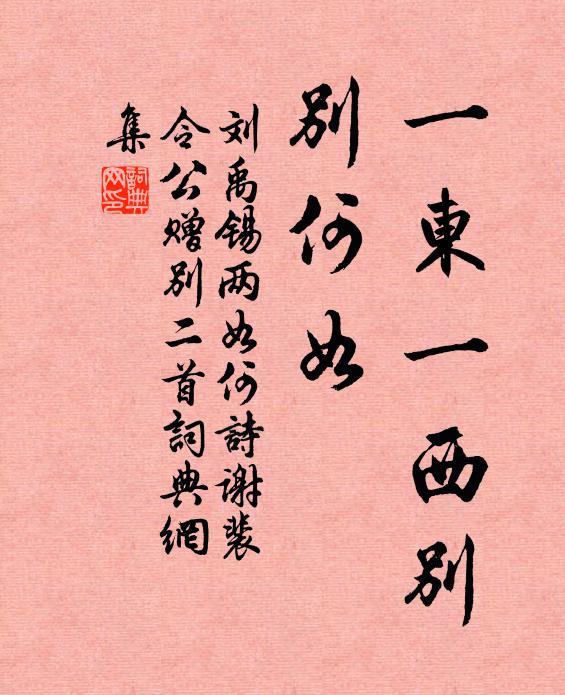 一東一西别
别何如
刘禹锡两如何詩谢裴
令公赠别二首詞典網
集
詞典
网印